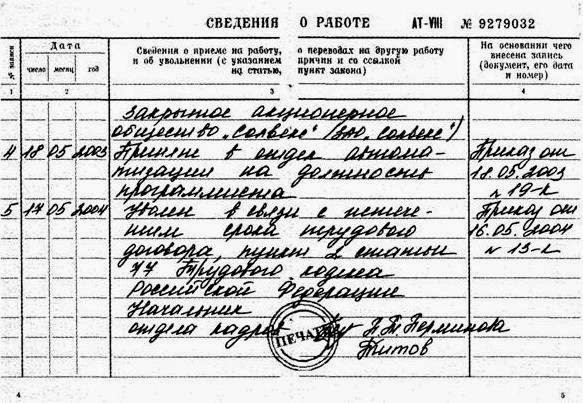 СВЕДЕНИЯ О РАБОТЕ АТ-VIII № 9279032
№ записи
Дата
число месяц год
Сведения о приеме на работу, о переводах на другую работу
и об увольнении (с указанием причин и со ссылкой
на статью, пункт закона)
На основании чего
внесена запись
(документ, его дата
и номер)
1 2 3 4
Закрытое акционерное
общество „Солвекс“ (ЗАО „Солвекс“)
4 18 05 2003 Принят в отдел автома- Приказ от
тизации на должность 18.05.2003
программиста № 19-к
5 17 05 2004 Уволен в связи с истече- Приказ от
нием срока трудового 16.05.2004
договора, пункт 2 статьи № 13-к
77 Трудового кодекса
Российской Федерации
Начальник
отдела кадров П.Т. Перминова
ПЕЧАТЬ
Титов
4 5